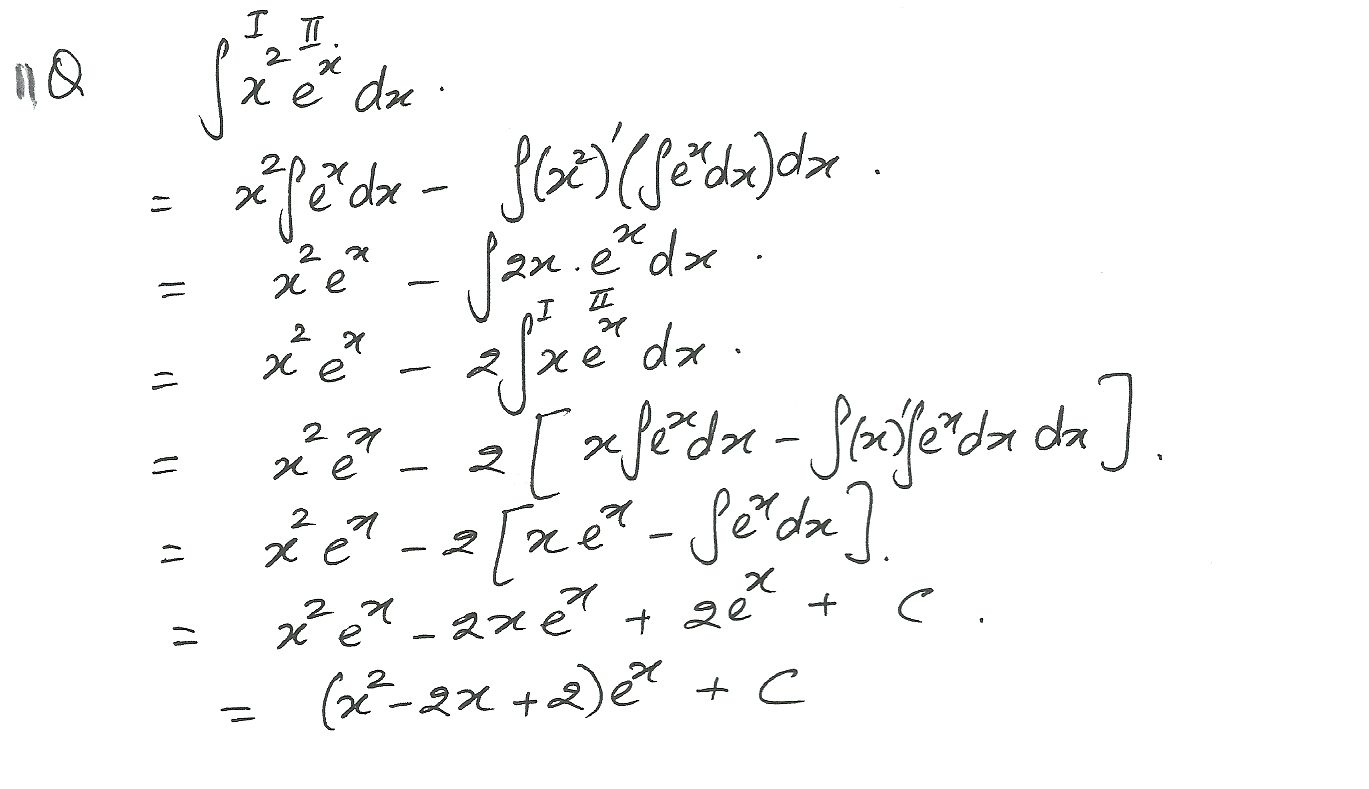 11Q ∫ x² eˣ dx.
I II.
= x²∫eˣdx − ∫(x²)'(∫eˣdx)dx.
= x² eˣ − ∫2x.eˣdx.
I II
= x² eˣ − 2∫x eˣ dx.
= x² eˣ − 2[x∫eˣdx − ∫(x)'∫eˣdx dx].
= x² eˣ − 2[x eˣ − ∫eˣdx].
= x² eˣ − 2x eˣ + 2eˣ + C.
= (x²−2x+2)eˣ + C